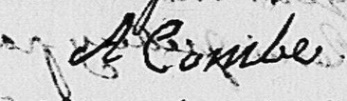 A Combe